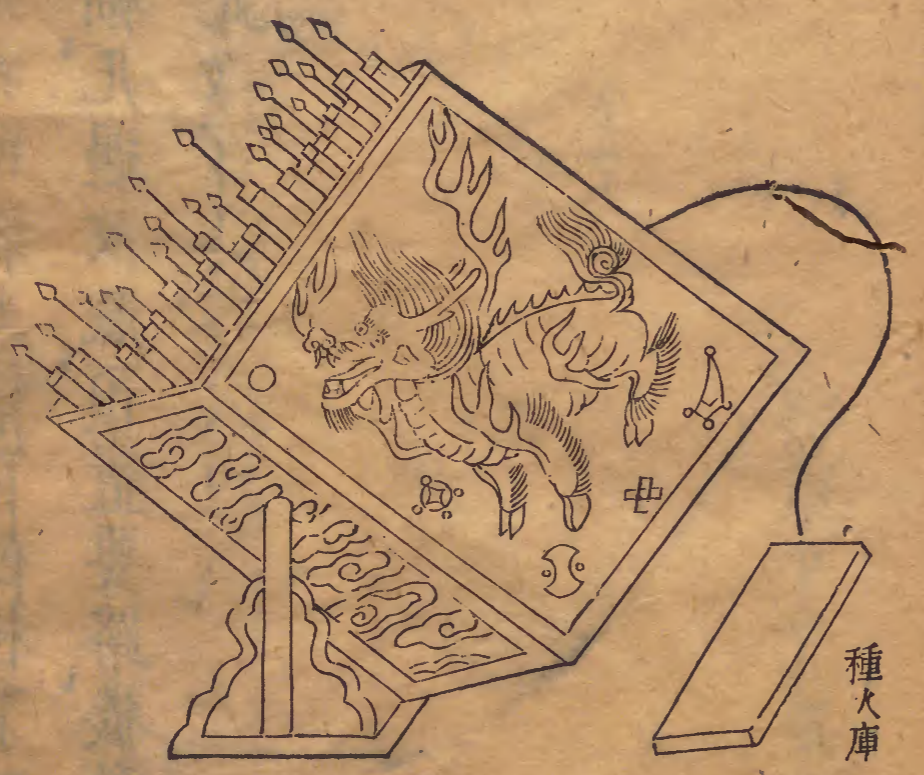 種火庫